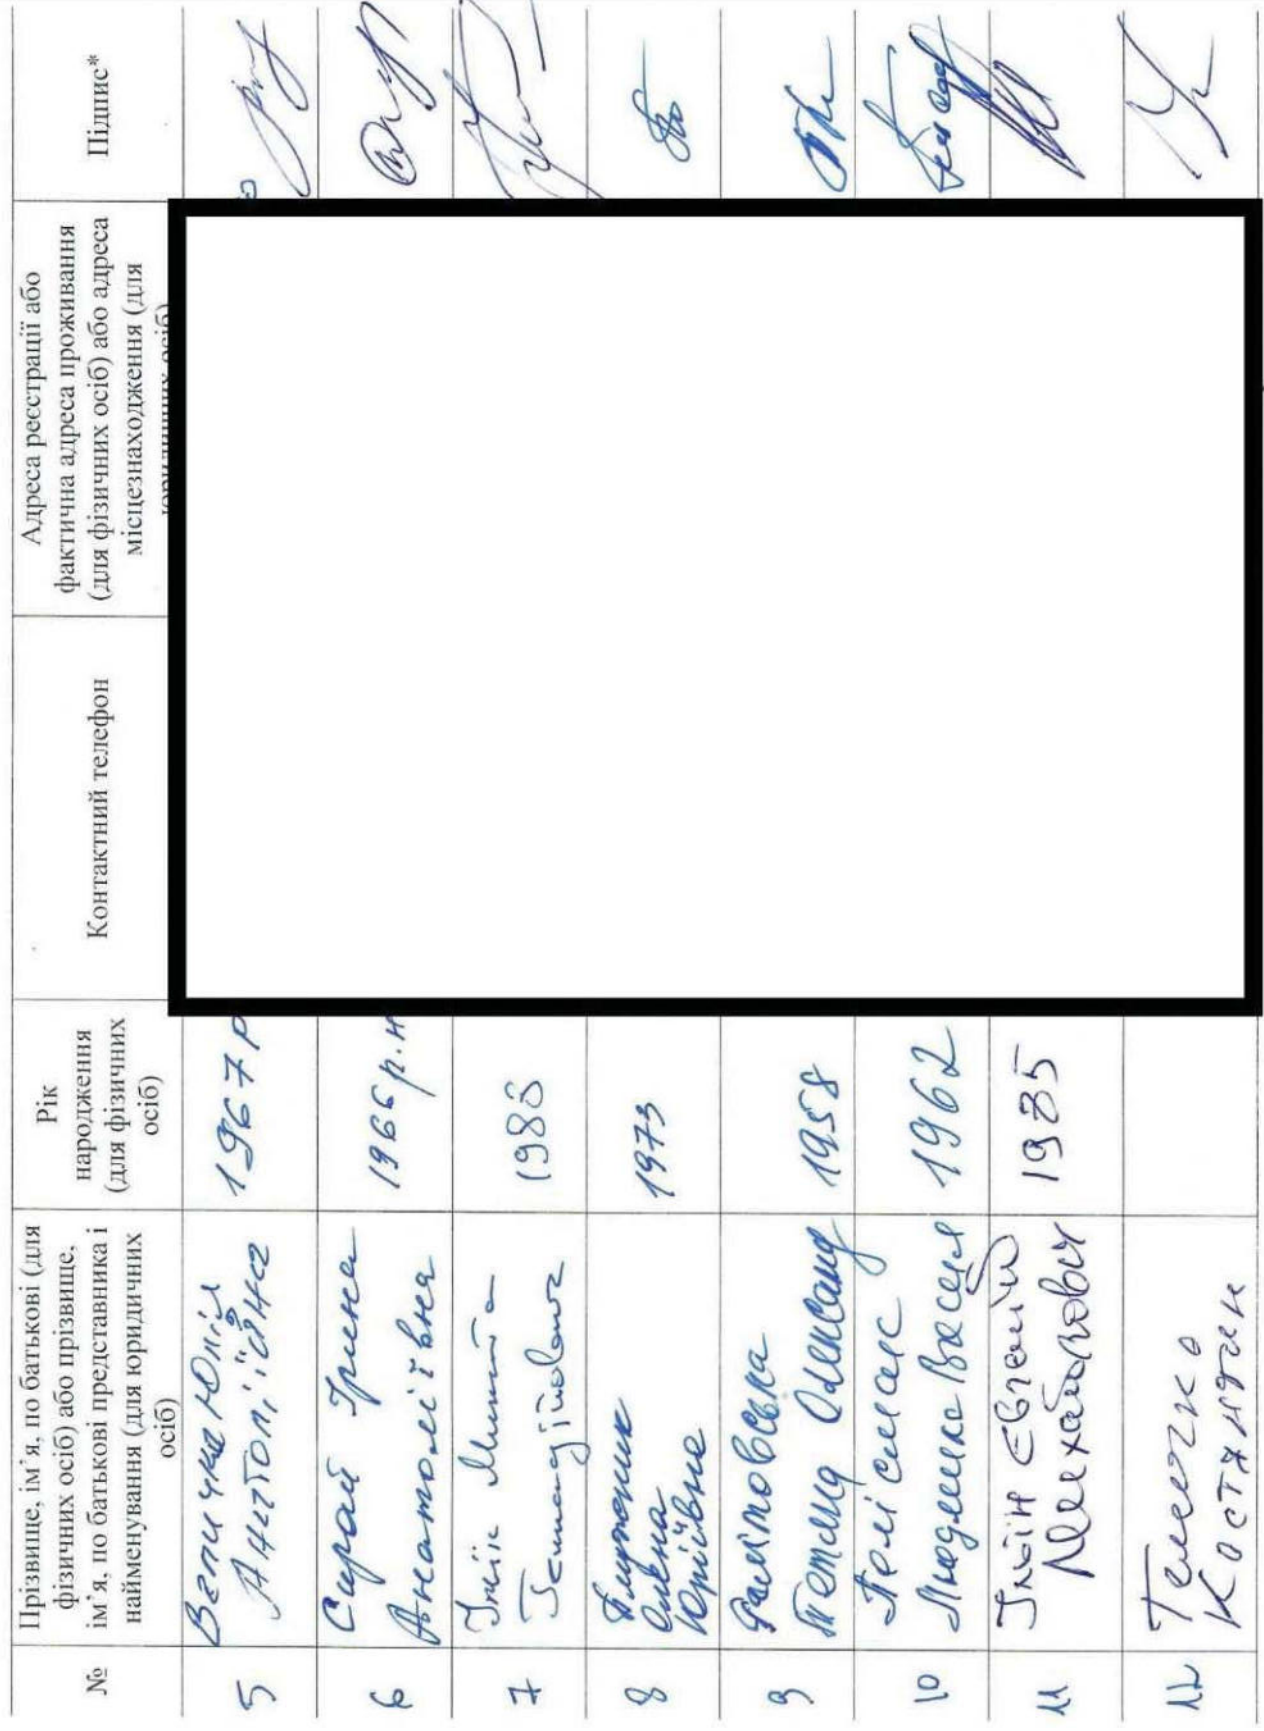 №
Прізвище, ім’я, по батькові (для
фізичних осіб) або прізвище,
ім’я, по батькові представника і
найменування (для юридичних
осіб)
Рік
народження
(для фізичних
осіб)
Контактний телефон
Адреса реєстрації або
фактична адреса проживання
(для фізичних осіб) або адреса
місцезнаходження (для
Підпис*
5
Юлія
1967 р
6
Сирай Ірина
Анатоліївна
1966 р.н
7
Ільїн Микита
Геннадійович
1988
8
Олена
Юрійвна
1973
9
Фалітовська
Тетяна Олександ
1958
10
Людмила Васил
1962
11
Ільїн Євгеній
Михайлович
1985
12
Телегко
Костянтин